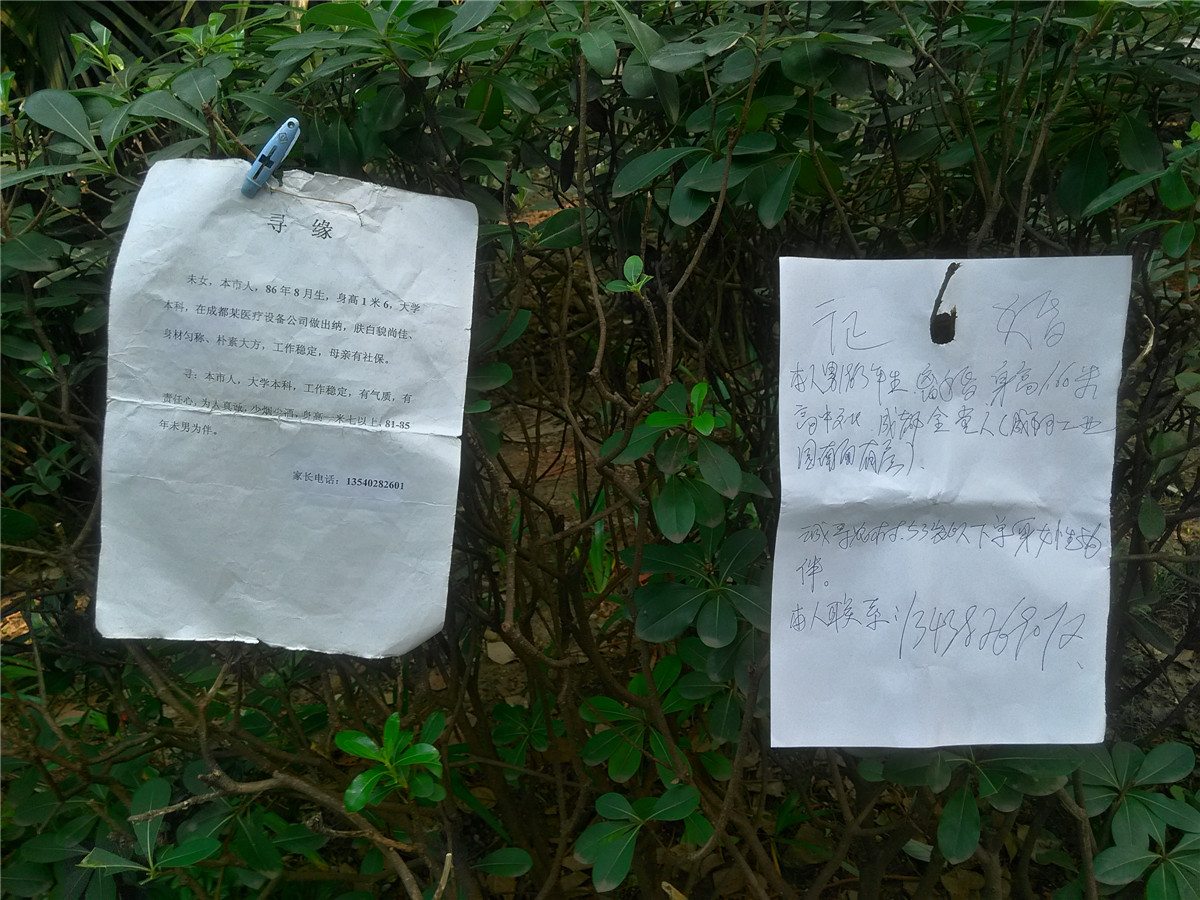 寻 缘
未女，本市人，86年8月生，身高1米6，大学
本科，在成都某医疗设备公司做出纳，肤白貌尚佳、
身材匀称、朴素大方，工作稳定，母亲有社保。
寻：本市人，大学本科，工作稳定，有气质，有
责任心，为人真诚，少烟少酒，身高一米七以上，81-85
年未男为伴。
家长电话：13540282601
婚
本人男 年生 离婚 身高 米
高中文化 成都
园南面有房）、
诚寻 岁以下单身女性为
伴。
本人联系：